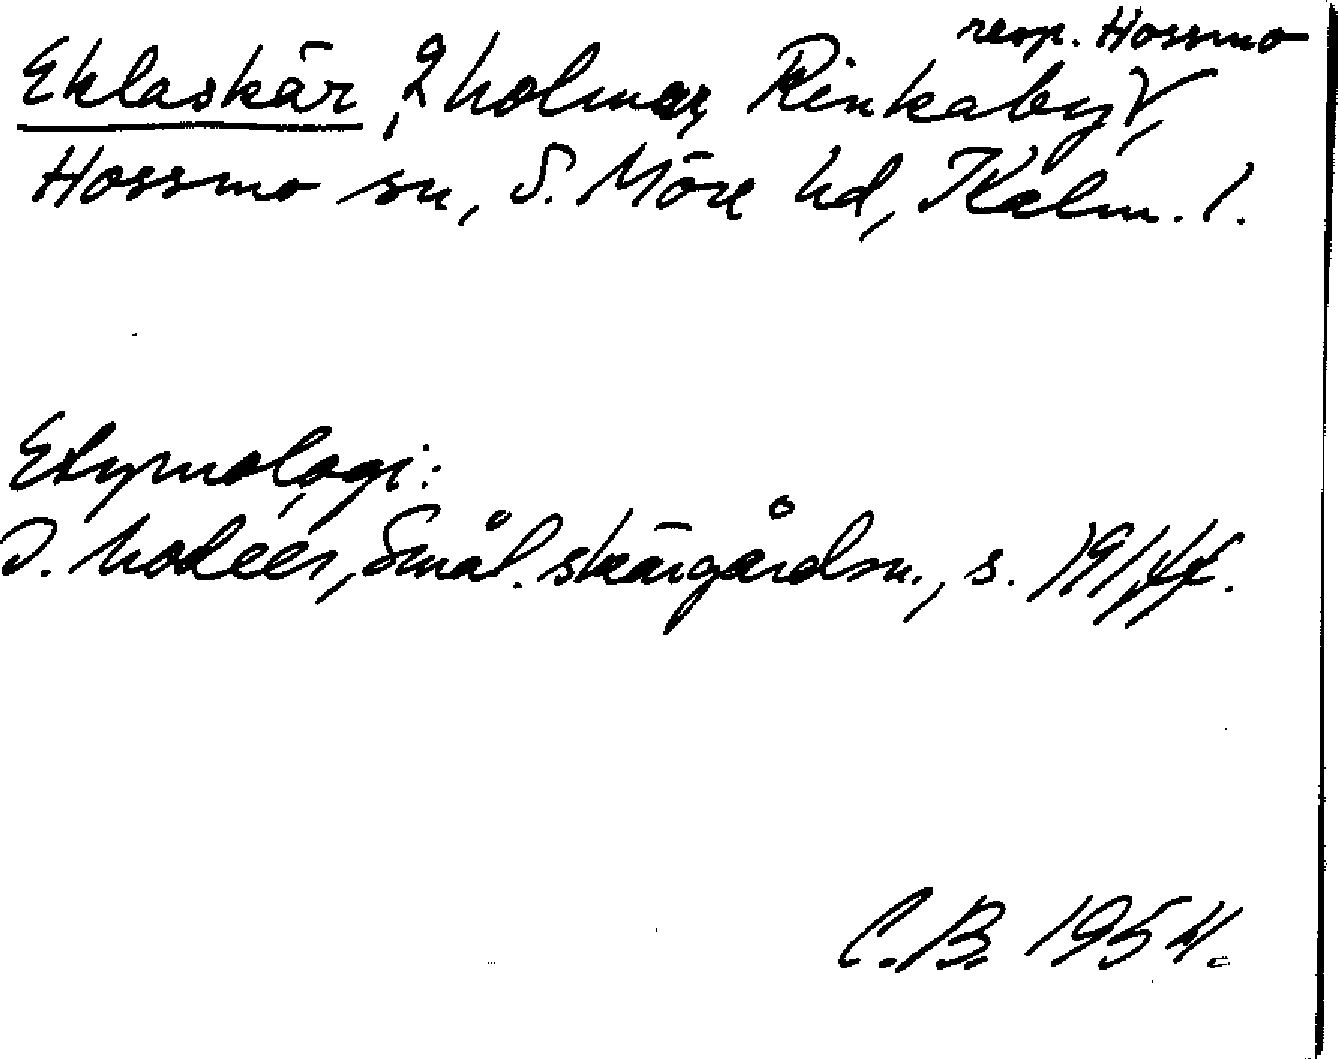 resp. Hossmo
Eklaskär, 2 holmar, Rinkaby,
Hossmo sn, S. Möre hd, Kalm. l.
Etymologi:
I. Modéer, Smål. skärgårdsn., s. 19, 44.
C.B. 1954.